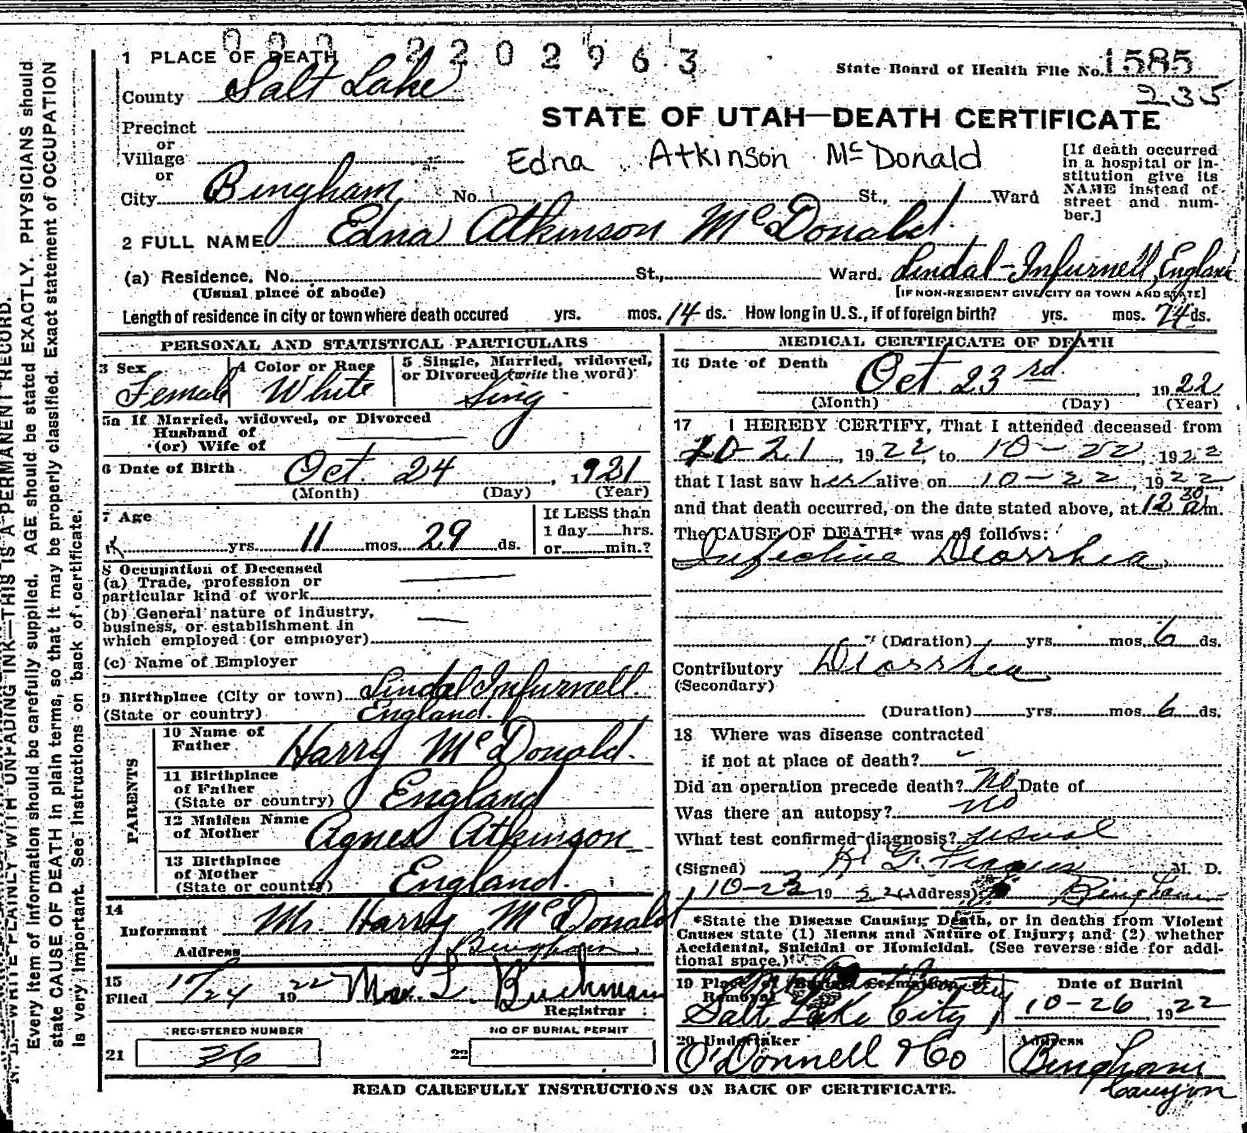 000 2202963
1 PLACE OF DEATH
State Board of Health File No. 1585
235
County Salt Lake
STATE OF UTAH—DEATH CERTIFICATE
Precinct
or
Village
or
Edna Atkinson McDonald
[If death occurred
in a hospital or in-
stitution give its
NAME instead of
street and num-
ber.]
City Bingham No. St., 1 Ward
2 FULL NAME Edna Atkinson McDonald
(a) Residence. No. St., Ward. Lindal-Infurnell, England
(Usual place of abode) [IF NON-RESIDENT GIVE CITY OR TOWN AND STATE]
Length of residence in city or town where death occured yrs. mos. 14 ds. How long in U.S., if of foreign birth? yrs. mos. 24 ds.
PERSONAL AND STATISTICAL PARTICULARS
3 Sex
Female
4 Color or Race
White
5 Single, Married, widowed,
or Divorced (write the word)
Sing
5a If Married, widowed, or Divorced
Husband of
(or) Wife of
6 Date of Birth Oct. 24, 1921
(Month) (Day) (Year)
7 Age
yrs. 11 mos. 29 ds.
If LESS than
1 day hrs.
or min.?
8 Occupation of Deceased
(a) Trade, profession or
particular kind of work
(b) General nature of industry,
business, or establishment in
which employed (or employer)
(c) Name of Employer
9 Birthplace (City or town) Lindal Infurnell
(State or country) England.
PARENTS
10 Name of
Father Harry McDonald.
11 Birthplace
of Father
(State or country) England
12 Maiden Name
of Mother Agnes Atkinson
13 Birthplace
of Mother
(State or country) England.
14
Informant Mr. Harry McDonald
Address Bingham
15
Filed 10/24 1922 Max. L. Buchman
Registrar
REGISTERED NUMBER
21 36
NO OF BURIAL PERMIT
22
MEDICAL CERTIFICATE OF DEATH
16 Date of Death Oct 23rd 1922
(Month) (Day) (Year)
17 I HEREBY CERTIFY, That I attended deceased from
10-21, 1922, to 10-22, 1922
that I last saw her alive on 10-22, 1922
and that death occurred, on the date stated above, at 12 30 a m.
The CAUSE OF DEATH* was as follows:
Infective Diarrhea
(Duration) yrs. mos. 6 ds.
Contributory Diarrhea
(Secondary)
(Duration) yrs. mos. 6 ds.
18 Where was disease contracted
if not at place of death?
Did an operation precede death? No Date of
Was there an autopsy? no
What test confirmed diagnosis? usual
(Signed) M. D.
10-23 1922 (Address) Bingham
*State the Disease Causing Death, or in deaths from Violent
Causes state (1) Means and Nature of Injury; and (2) whether
Accidental, Suicidal or Homicidal. (See reverse side for addi-
tional space.)
19 Place of Burial, Cremation or
Removal
Salt Lake City
Date of Burial
10-26 1922
20 Undertaker
O'Donnell & Co
Address
Bingham
Canyon
READ CAREFULLY INSTRUCTIONS ON BACK OF CERTIFICATE.
N. B.—WRITE PLAINLY WITH UNFADING INK—THIS IS A PERMANENT RECORD.
Every item of information should be carefully supplied. AGE should be stated EXACTLY. PHYSICIANS should
state CAUSE OF DEATH in plain terms, so that it may be properly classified. Exact statement of OCCUPATION
is very important. See instructions on back of certificate.